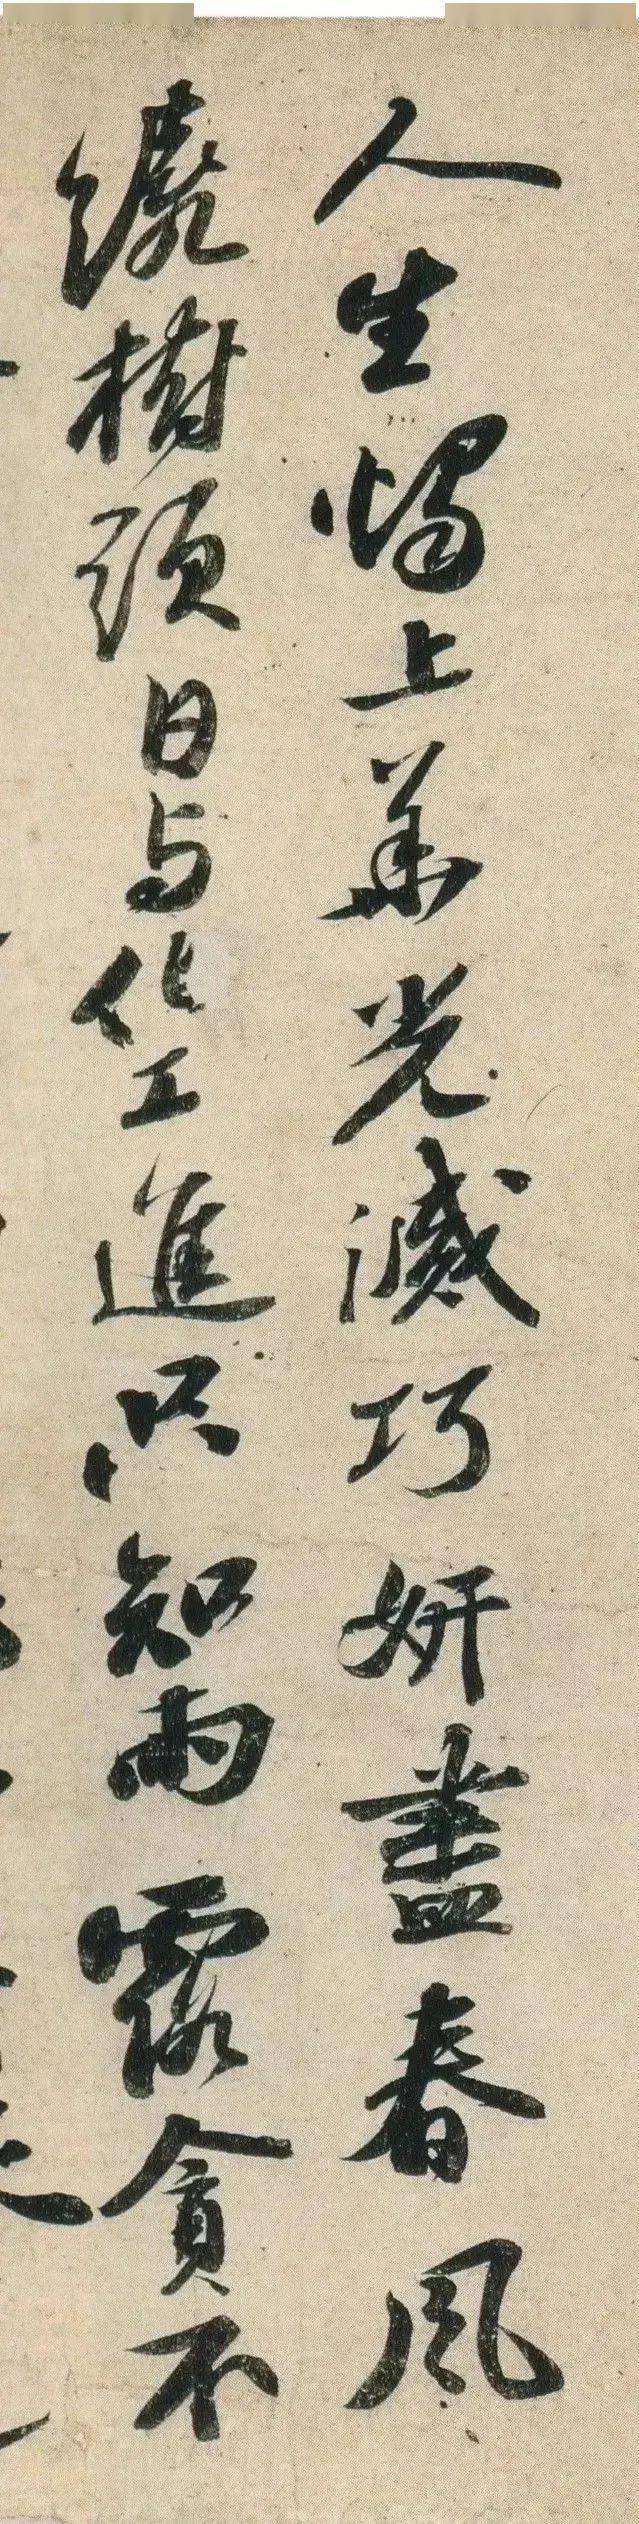 人生燭上華光滅巧妍盡春風
繞樹頭日与化工進只知雨露貪不